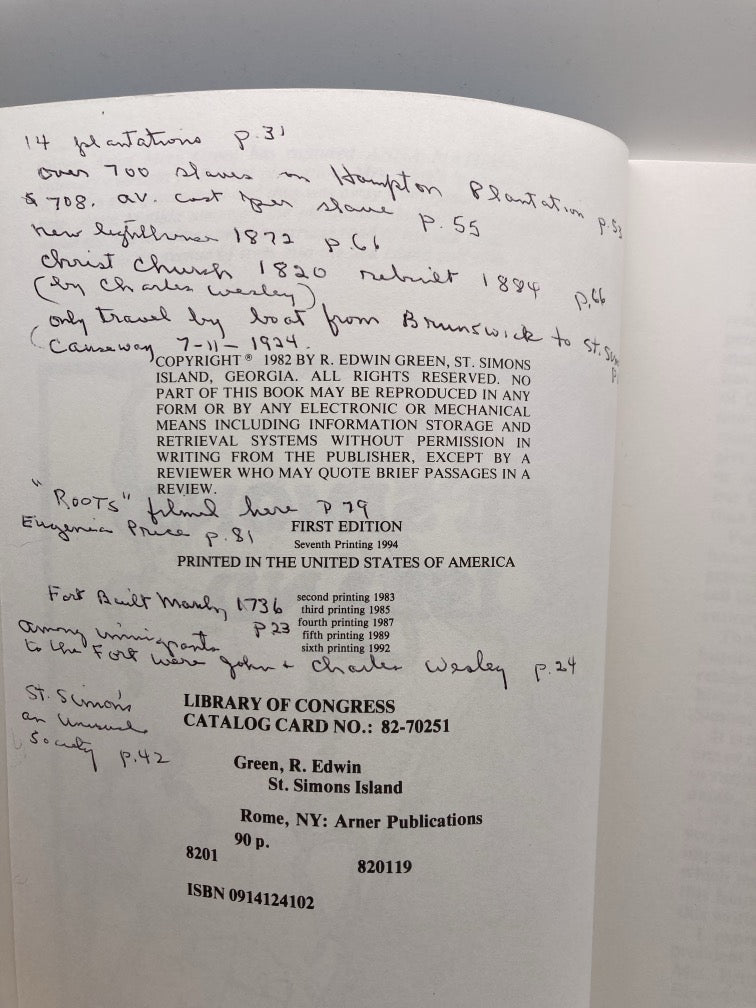 14 plantations p.31
over 700 slaves on Hampton Plantation p.53
$708. av. cost per slave p.55
new lighthouse 1872 p.66
Christ Church 1820 rebuilt 1884 p.66
(by Charles Wesley)
only travel by boat from Brunswick to St. Sim
(Causeway 7-11-1924.
COPYRIGHT ® 1982 BY R. EDWIN GREEN, ST. SIMONS
ISLAND, GEORGIA. ALL RIGHTS RESERVED. NO
PART OF THIS BOOK MAY BE REPRODUCED IN ANY
FORM OR BY ANY ELECTRONIC OR MECHANICAL
MEANS INCLUDING INFORMATION STORAGE AND
RETRIEVAL SYSTEMS WITHOUT PERMISSION IN
WRITING FROM THE PUBLISHER, EXCEPT BY A
REVIEWER WHO MAY QUOTE BRIEF PASSAGES IN A
REVIEW.
"ROOTS" filmed here p 79
Eugenia Price p.81
FIRST EDITION
Seventh Printing 1994
PRINTED IN THE UNITED STATES OF AMERICA
second printing 1983
third printing 1985
fourth printing 1987
fifth printing 1989
sixth printing 1992
Fort Built March, 1736
p 23
among immigrants
to the Fort were John + Charles Wesley p.24
LIBRARY OF CONGRESS
CATALOG CARD NO.: 82-70251
St. Simons
an unusual
Society p.42
Green, R. Edwin
St. Simons Island
Rome, NY: Arner Publications
90 p.
8201 820119
ISBN 0914124102